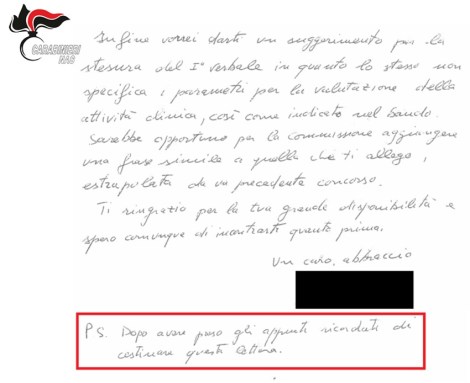 CARABINIERI
NAS
Infine vorrei darti un suggerimento per la
stesura del I° verbale in quanto lo stesso non
specifica i parametri per la valutazione della
attività clinica, così come indicato nel Bando.
Sarebbe opportuno per la Commissione aggiungere
una frase simile a quella che ti allego,
estrapolata da un precedente concorso.
Ti ringrazio per la tua grande disponibilità e
spero comunque di incontrarti quanto prima.
Un caro abbraccio
P.S. Dopo avere preso gli appunti ricordati di
cestinare questa lettera.